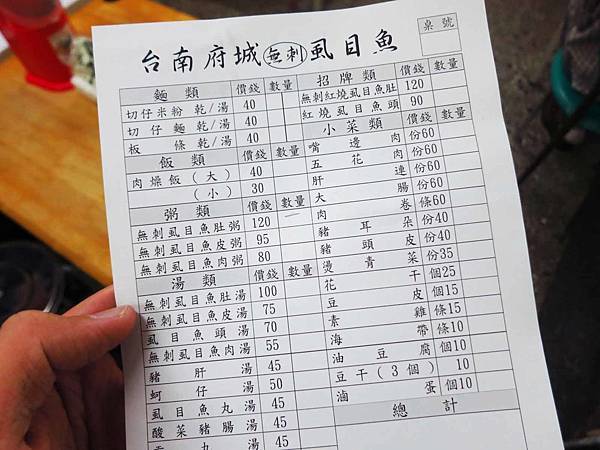 台南府城無刺虱目魚
桌號
麵類 價錢 數量
切仔米粉 乾/湯 40
切仔麵 乾/湯 40
板條 乾/湯 40
飯類 價錢 數量
肉燥飯(大) 40
(小) 30
粥類 價錢 數量
無刺虱目魚肚粥 120
無刺虱目魚皮粥 95
無刺虱目魚肉粥 80
湯類 價錢 數量
無刺虱目魚肚湯 100
無刺虱目魚皮湯 75
虱目魚頭湯 70
無刺虱目魚肉湯 55
豬肝湯 45
蚵仔湯 50
虱目魚丸湯 45
酸菜豬腸湯 45
丸湯 45
招牌類 價錢 數量
無刺紅燒虱目魚肚 120
紅燒虱目魚頭 90
小菜類 價錢 數量
嘴邊肉 份60
五花肉 份60
肝連 份60
大腸 份60
肉卷 條60
豬耳朵 份40
豬頭皮 份40
燙青菜 份35
花干 個25
豆皮 個15
素雞 條15
海帶 條10
油豆腐 個10
豆干(3個) 10
滷蛋 個10
總計